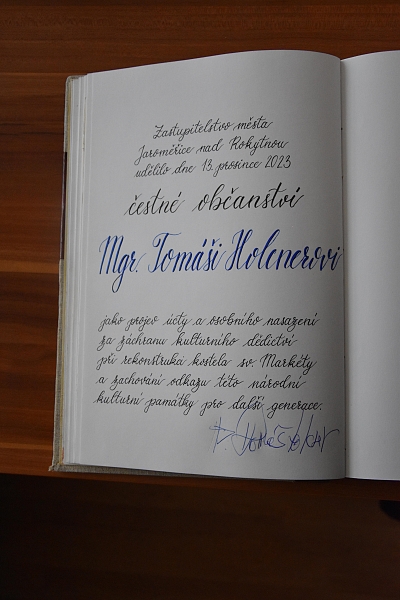 Zastupitelstvo města
Jaroměřice nad Rokytnou
udělilo dne 13. prosince 2023
čestné občanství
Mgr. Tomáši Holenerovi
jako projev úcty a osobního nasazení
za záchranu kulturního dědictví
při rekonstrukci kostela sv. Markéty
a zachování odkazu této národní
kulturní památky pro další generace.